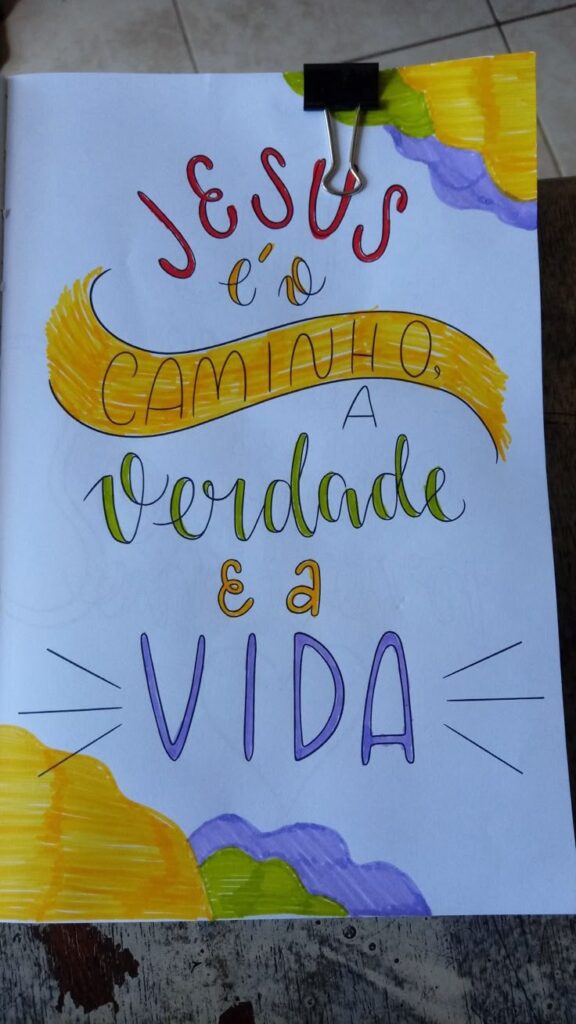 JESUS
é o
CAMINHO,
A
verdade
E a
VIDA